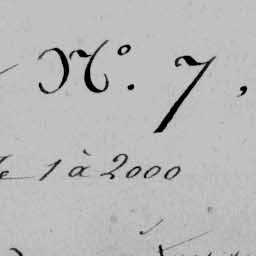 N°. 7,
de 1 à 2000